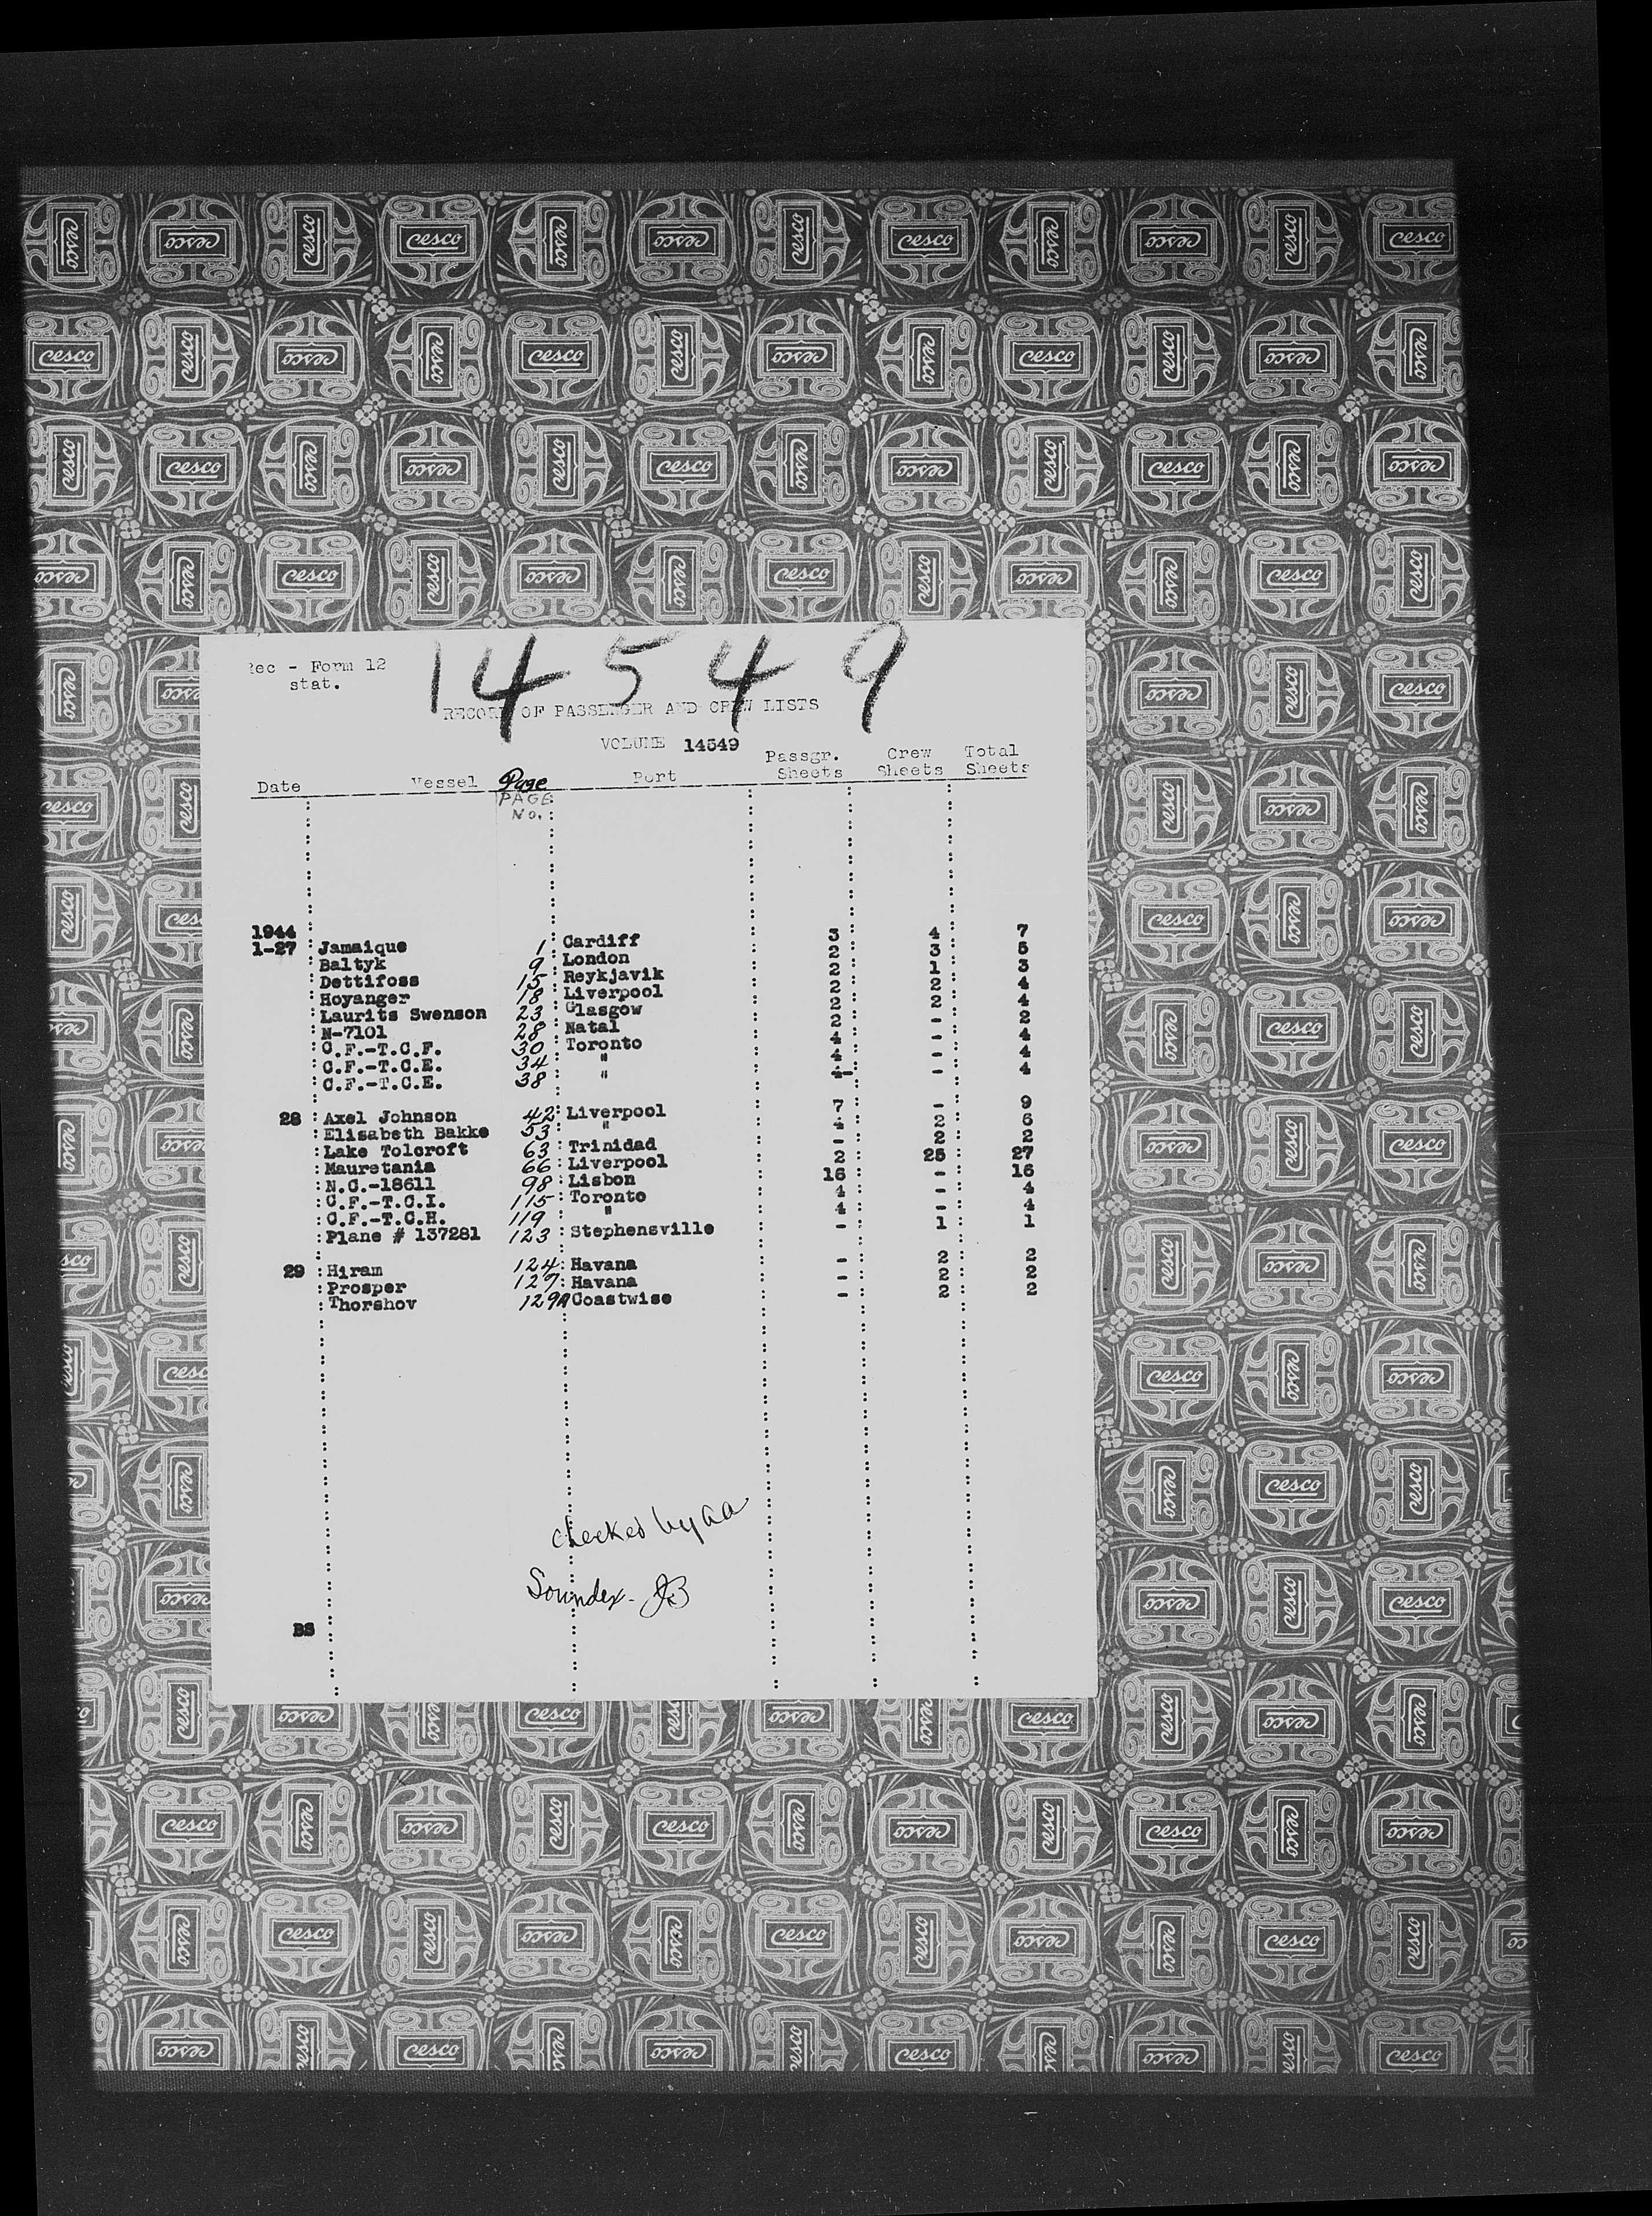 14549
Rec - Form 12
stat.
RECORD OF PASSENGER AND CREW LISTS
VOLUME 14549
Date Vessel Page Port Passgr. Sheets Crew Sheets Total Sheets
PAGE
No.
1944
1-27 Jamaique 1 Cardiff 3 4 7
Baltyk 9 London 2 3 5
Dettifoss 15 Reykjavik 2 1 3
Hoyanger 18 Liverpool 2 2 4
Laurits Swenson 23 Glasgow 2 2 4
N-7101 28 Natal 2 - 2
C.F.-T.C.F. 30 Toronto 4 - 4
C.F.-T.C.E. 34 " 4 - 4
C.F.-T.C.E. 38 " 4 - 4
28 Axel Johnson 42 Liverpool 7 - 9
Elisabeth Bakke 53 " 4 2 6
Lake Tolcroft 63 Trinidad - 2 2
Mauretania 66 Liverpool 2 25 27
N.C.-18611 98 Lisbon 16 - 16
C.F.-T.C.I. 115 Toronto 4 - 4
C.F.-T.C.H. 119 " 4 - 4
Plane # 137281 123 Stephensville - 1 1
29 Hiram 124 Havana - 2 2
Prosper 127 Havana - 2 2
Thorshov 129A Coastwise - 2 2
checked by aa
Soundex - JB
BS
cesco